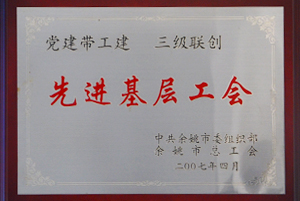 党建带工建 三级联创
先进基层工会
中共余姚市委组织部
余姚市总工会
二00七年四月